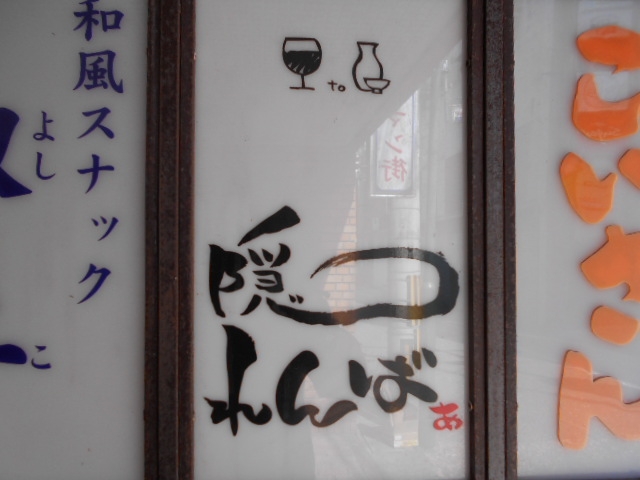 和風スナック
よし
こ
to
隠
れんば
あ
こいさん